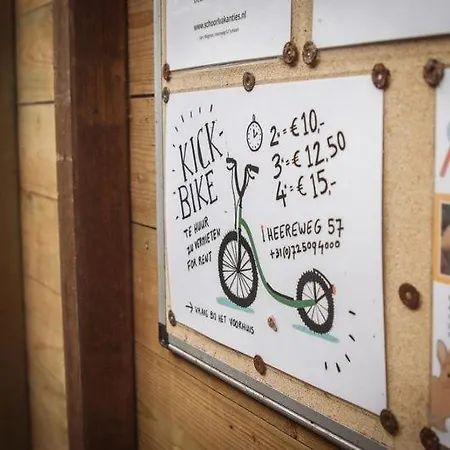 www.schoorlvakanties.nl
KICK-
BIKE
TE HUUR
ZU VERMIETEN
FOR RENT
→ VRAAG BIJ HET VOORHUIS
2u = €10,-
3u = €12,50
4u = €15,-
HEEREWEG 57
+31(0)725094000